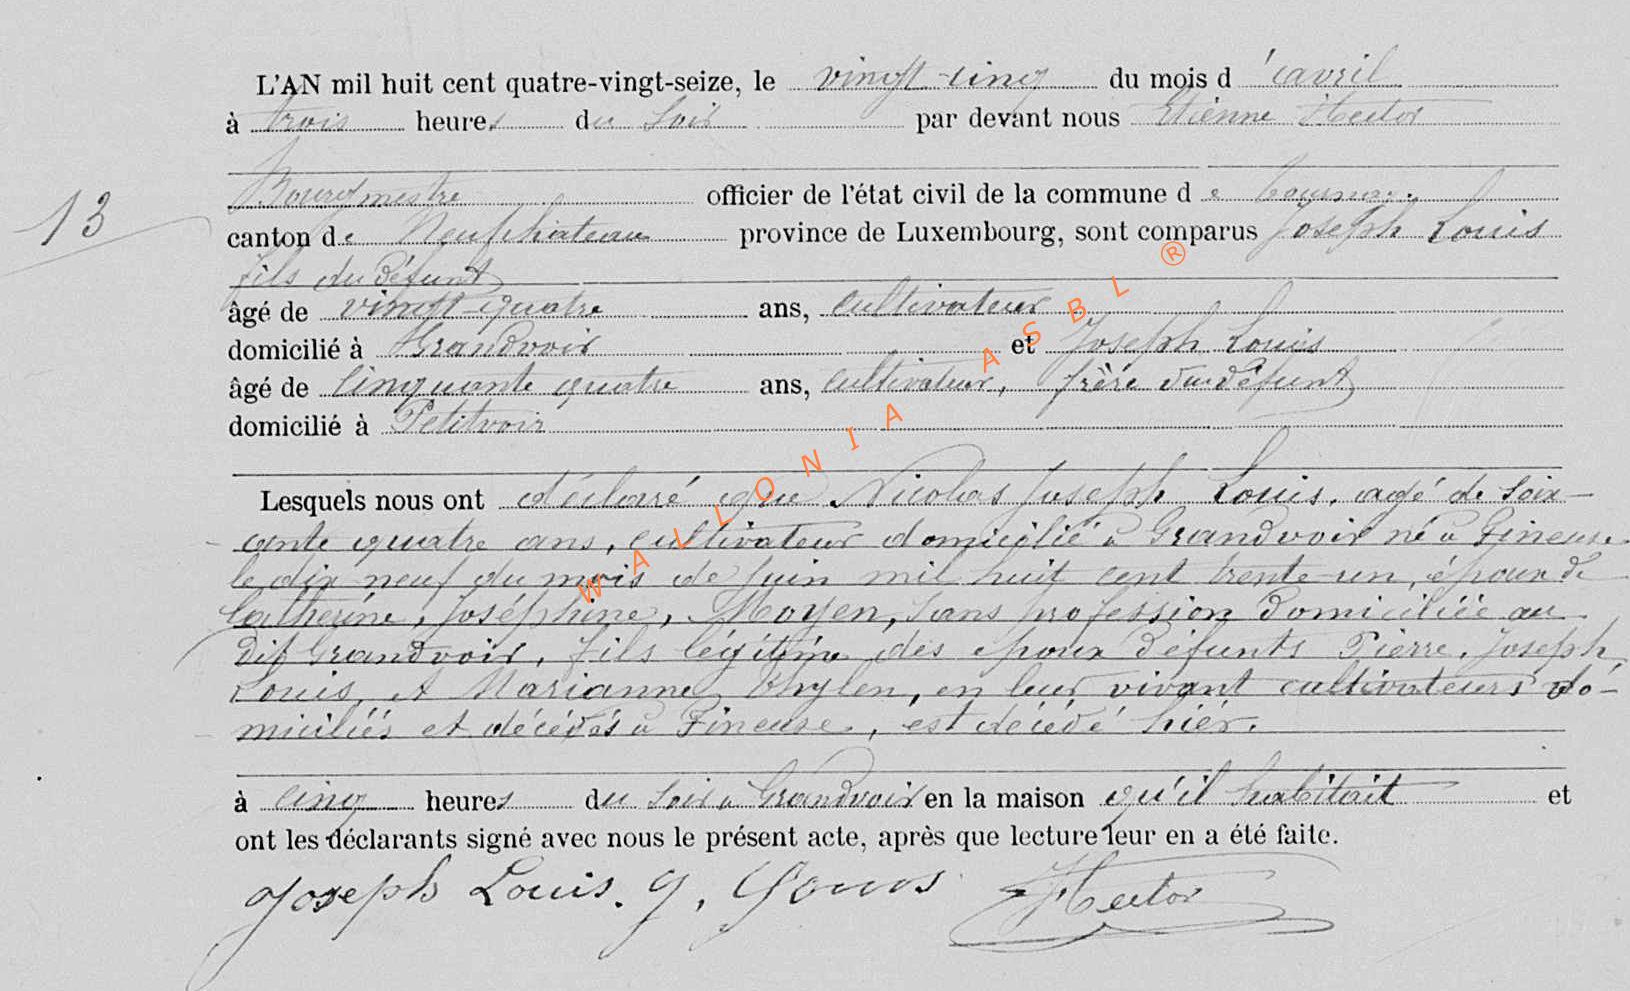 L'AN mil huit cent quatre-vingt-seize, le vingt-cinq du mois d'avril
à trois heures du soir par devant nous Etienne Hector
Bourgmestre officier de l'état civil de la commune de Tournay.
13
canton de Neufchâteau province de Luxembourg, sont comparus Joseph Louis
fils du défunt
âgé de vingt-quatre ans, cultivateur
domicilié à Grandvoir et Joseph Louis
âgé de cinquante quatre ans, cultivateur, frère du défunt
domicilié à Petitvoir
Lesquels nous ont déclaré que Nicolas Joseph Louis, agé de soix-
ante quatre ans, cultivateur domicilié à Grandvoir né à Fineuse
le dix neuf du mois de juin mil huit cent trente-un, époux de
Catherine, Joséphine, Moyen, sans profession domiciliée au
dit Grandvoir, fils légitime des époux défunts Pierre, Joseph,
Louis, et Marianne, Thylen, en leur vivant cultivateurs do-
miciliés et décédés à Fineuse, est décédé hier.
à cinq heures du soir à Grandvoir en la maison qu'il habitait et
ont les déclarants signé avec nous le présent acte, après que lecture leur en a été faite.
Joseph Louis. J, Louis Hector
WALLONIA ASBL ®